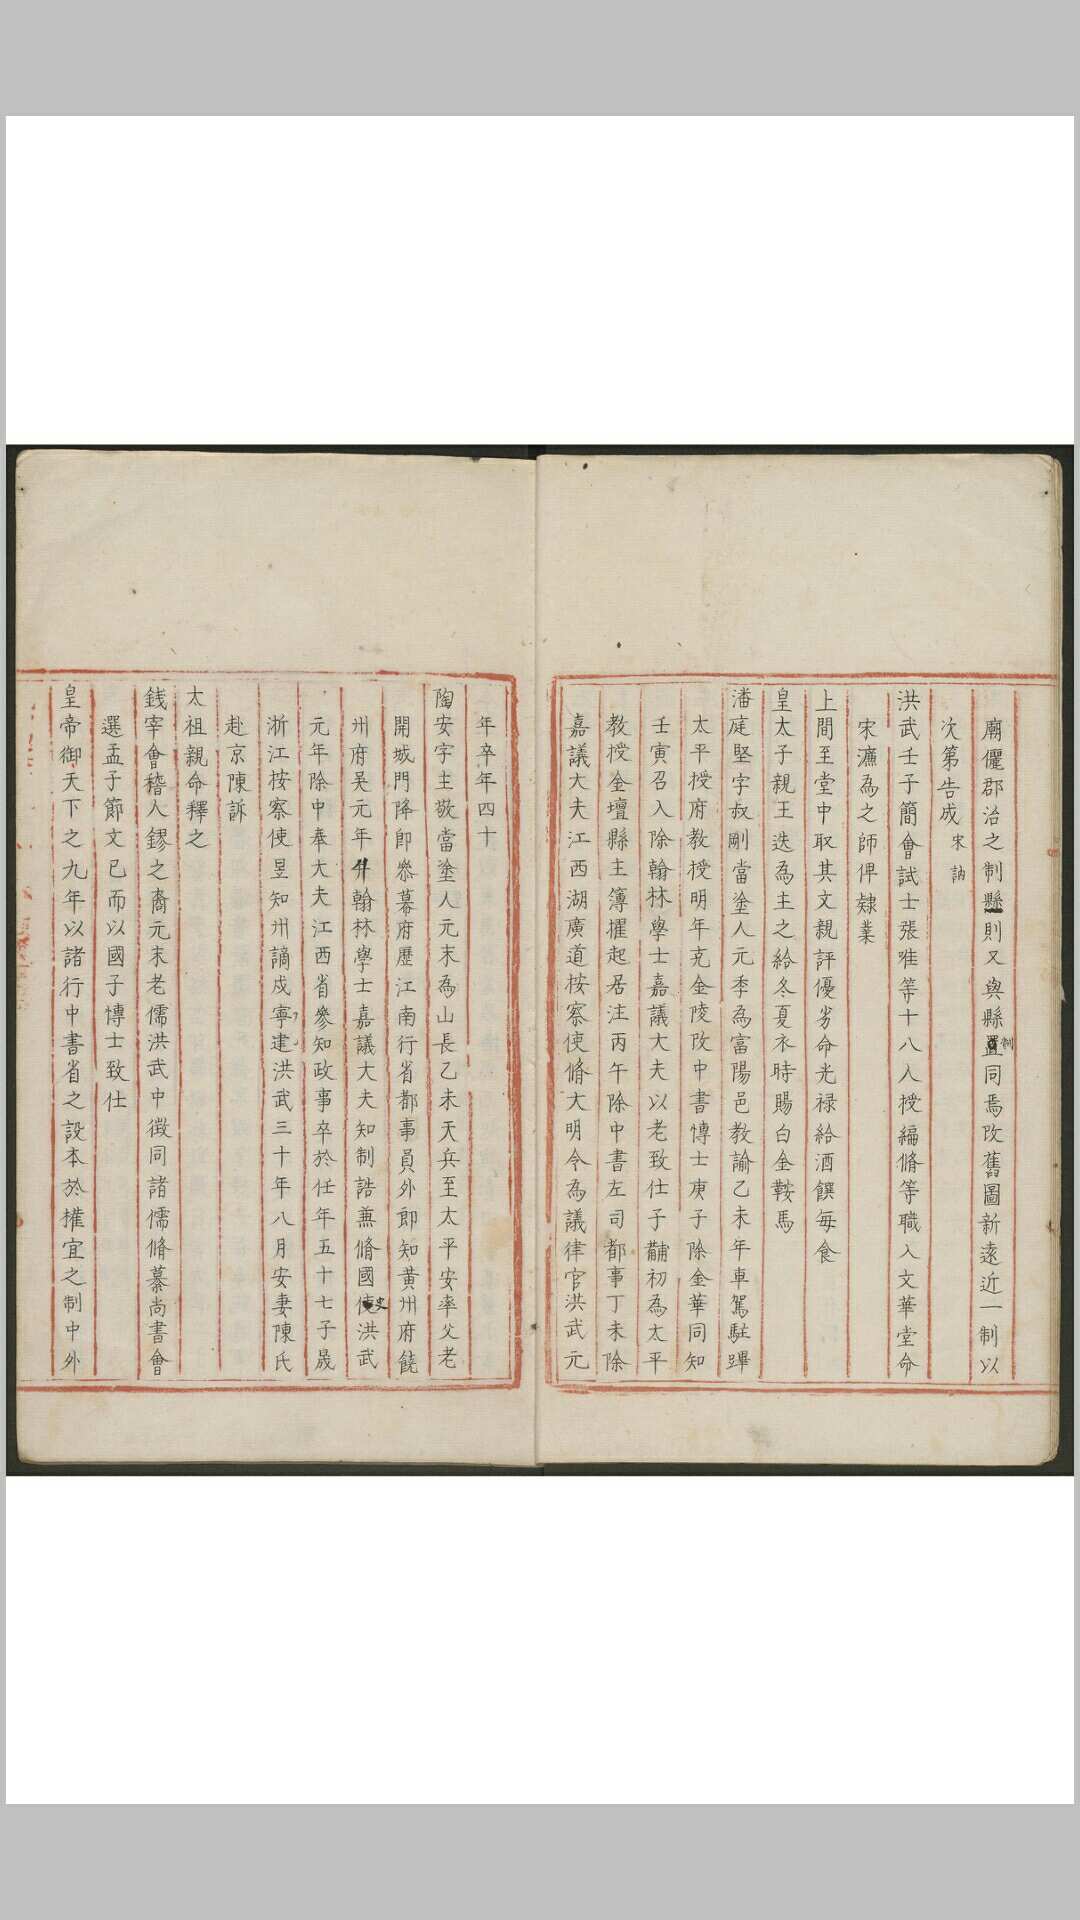 廟儷郡治之制縣則又與縣置制同焉改舊圖新遠近一制以
次第告成宋訥
洪武壬子簡會試士張唯等十八人授編脩等職入文華堂命
宋濂為之師俾隸業
上間至堂中取其文親評優劣命光祿給酒饌每食
皇太子親王迭為主之給冬夏衣時賜白金鞍馬
潘庭堅字叔剛當塗人元季為富陽邑教諭乙未年車駕駐蹕
太平授府教授明年克金陵改中書博士庚子除金華同知
壬寅召入除翰林學士嘉議大夫以老致仕子黼初為太平
教授金壇縣主簿擢起居注丙午除中書左司都事丁未除
嘉議大夫江西湖廣道按察使脩大明令為議律官洪武元
年卒年四十
陶安字主敬當塗人元末為山長乙未天兵至太平安率父老
開城門降即叅幕府歷江南行省都事員外郎知黃州府饒
州府吴元年升翰林學士嘉議大夫知制誥兼脩國使史洪武
元年除中奉大夫江西省參知政事卒於任年五十七子晟
浙江按察使昱知州謫戍寧建洪武三十年八月安妻陳氏
赴京陳訴
太祖親命釋之
錢宰會稽人鏐之裔元末老儒洪武中徵同諸儒脩纂尚書會
選孟子節文已而以國子博士致仕
皇帝御天下之九年以諸行中書省之設本於權宜之制中外